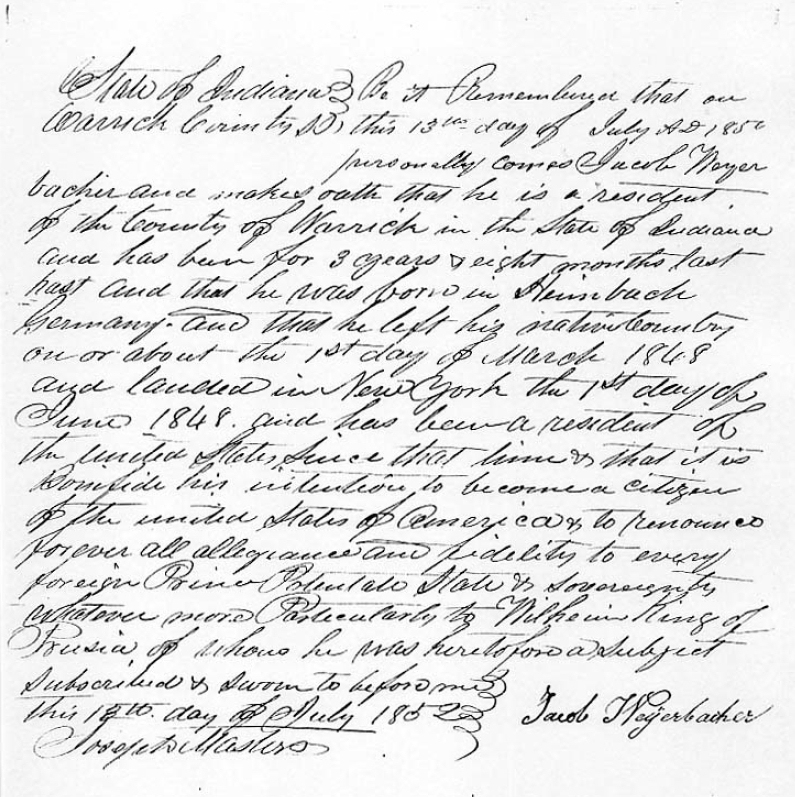 State of Indiana } Be it Remembered that on
Warrick County SS } this 13th day of July AD 185
personally comes Jacob Weyer
bacher and makes oath that he is a resident
of the County of Warrick in the State of Indiana
and has been for 3 years & eight months last
past and that he was born in Heimbach
Germany. and that he left his native Country
on or about the 1st day of March 1848
and landed in New York the 1st day of
June 1848. and has been a resident of
the united States since that time & that it is
Bonifide his intention to become a citizen
of the united States of America & to renounce
forever all allegiance and fidelity to every
foreign Prince Potentate State & sovereignty
whatever more Particularly to Wilheim King of
Prusia of whom he was heretofore a subject
Subscribed & sworn to before me }
this 13th day of July 1852 } Jacob Weyerbacher
Joseph Masters